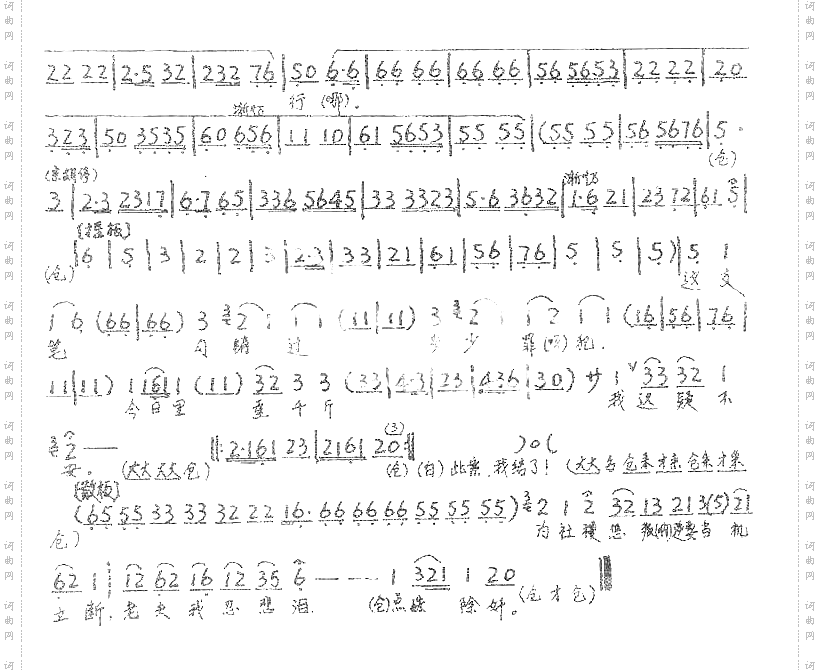 22 22 | 2·5 32 | 232 76 | 50 6·6 | 66 66 | 66 66 | 56 5653 | 22 22 | 20
行 (哪)。
323 | 50 3535 | 60 656 | 11 10 | 61 5653 | 55 55 | (55 55 | 56 5676 | 5·
(仓)
3 | 2·3 2317 | 6·7 65 | 336 5645 | 33 3323 | 5·6 3632 | 1·6 21 | 23 72 | 61 5 |
(仓) | 6 | 5 | 3 | 2 | 2 | 3 | 2·3 | 33 | 21 | 61 | 56 | 76 | 5 | 5 | 5) | 5 1
这 支
1 6 (66 | 66) 3 2 1 1 1 (11 | 11) 3 2 1 2 1 1 (16 | 56 | 76 |
笔 勾 销 过 多 少 罪 犯.
11 | 11) 1 161 1 (11) 32 3 3 (33 | 4·3 | 23 | 436 | 30) サ 1 33 32 1
今日里 重 千 斤 我 迟 疑 不
2 —— 2·161 23 | 2161 20 (3) )0(
安。 (大大 大大 仓) (仓) (白) 此案, 我结了! (大大 台 仓来 才来 仓来 才来
[散板]
(65 55 33 33 32 22 16· 66 66 66 55 55 55) 2 1 2 32 13 21 3(5) 21
仓) 为 社 稷 当 机
62 1 12 62 16 12 35 6 — — — 1 321 1 20
立 断, 老 夫 我 忍 悲 泪. (仓) 点 除 奸。 (仓 才 仓)
词曲网